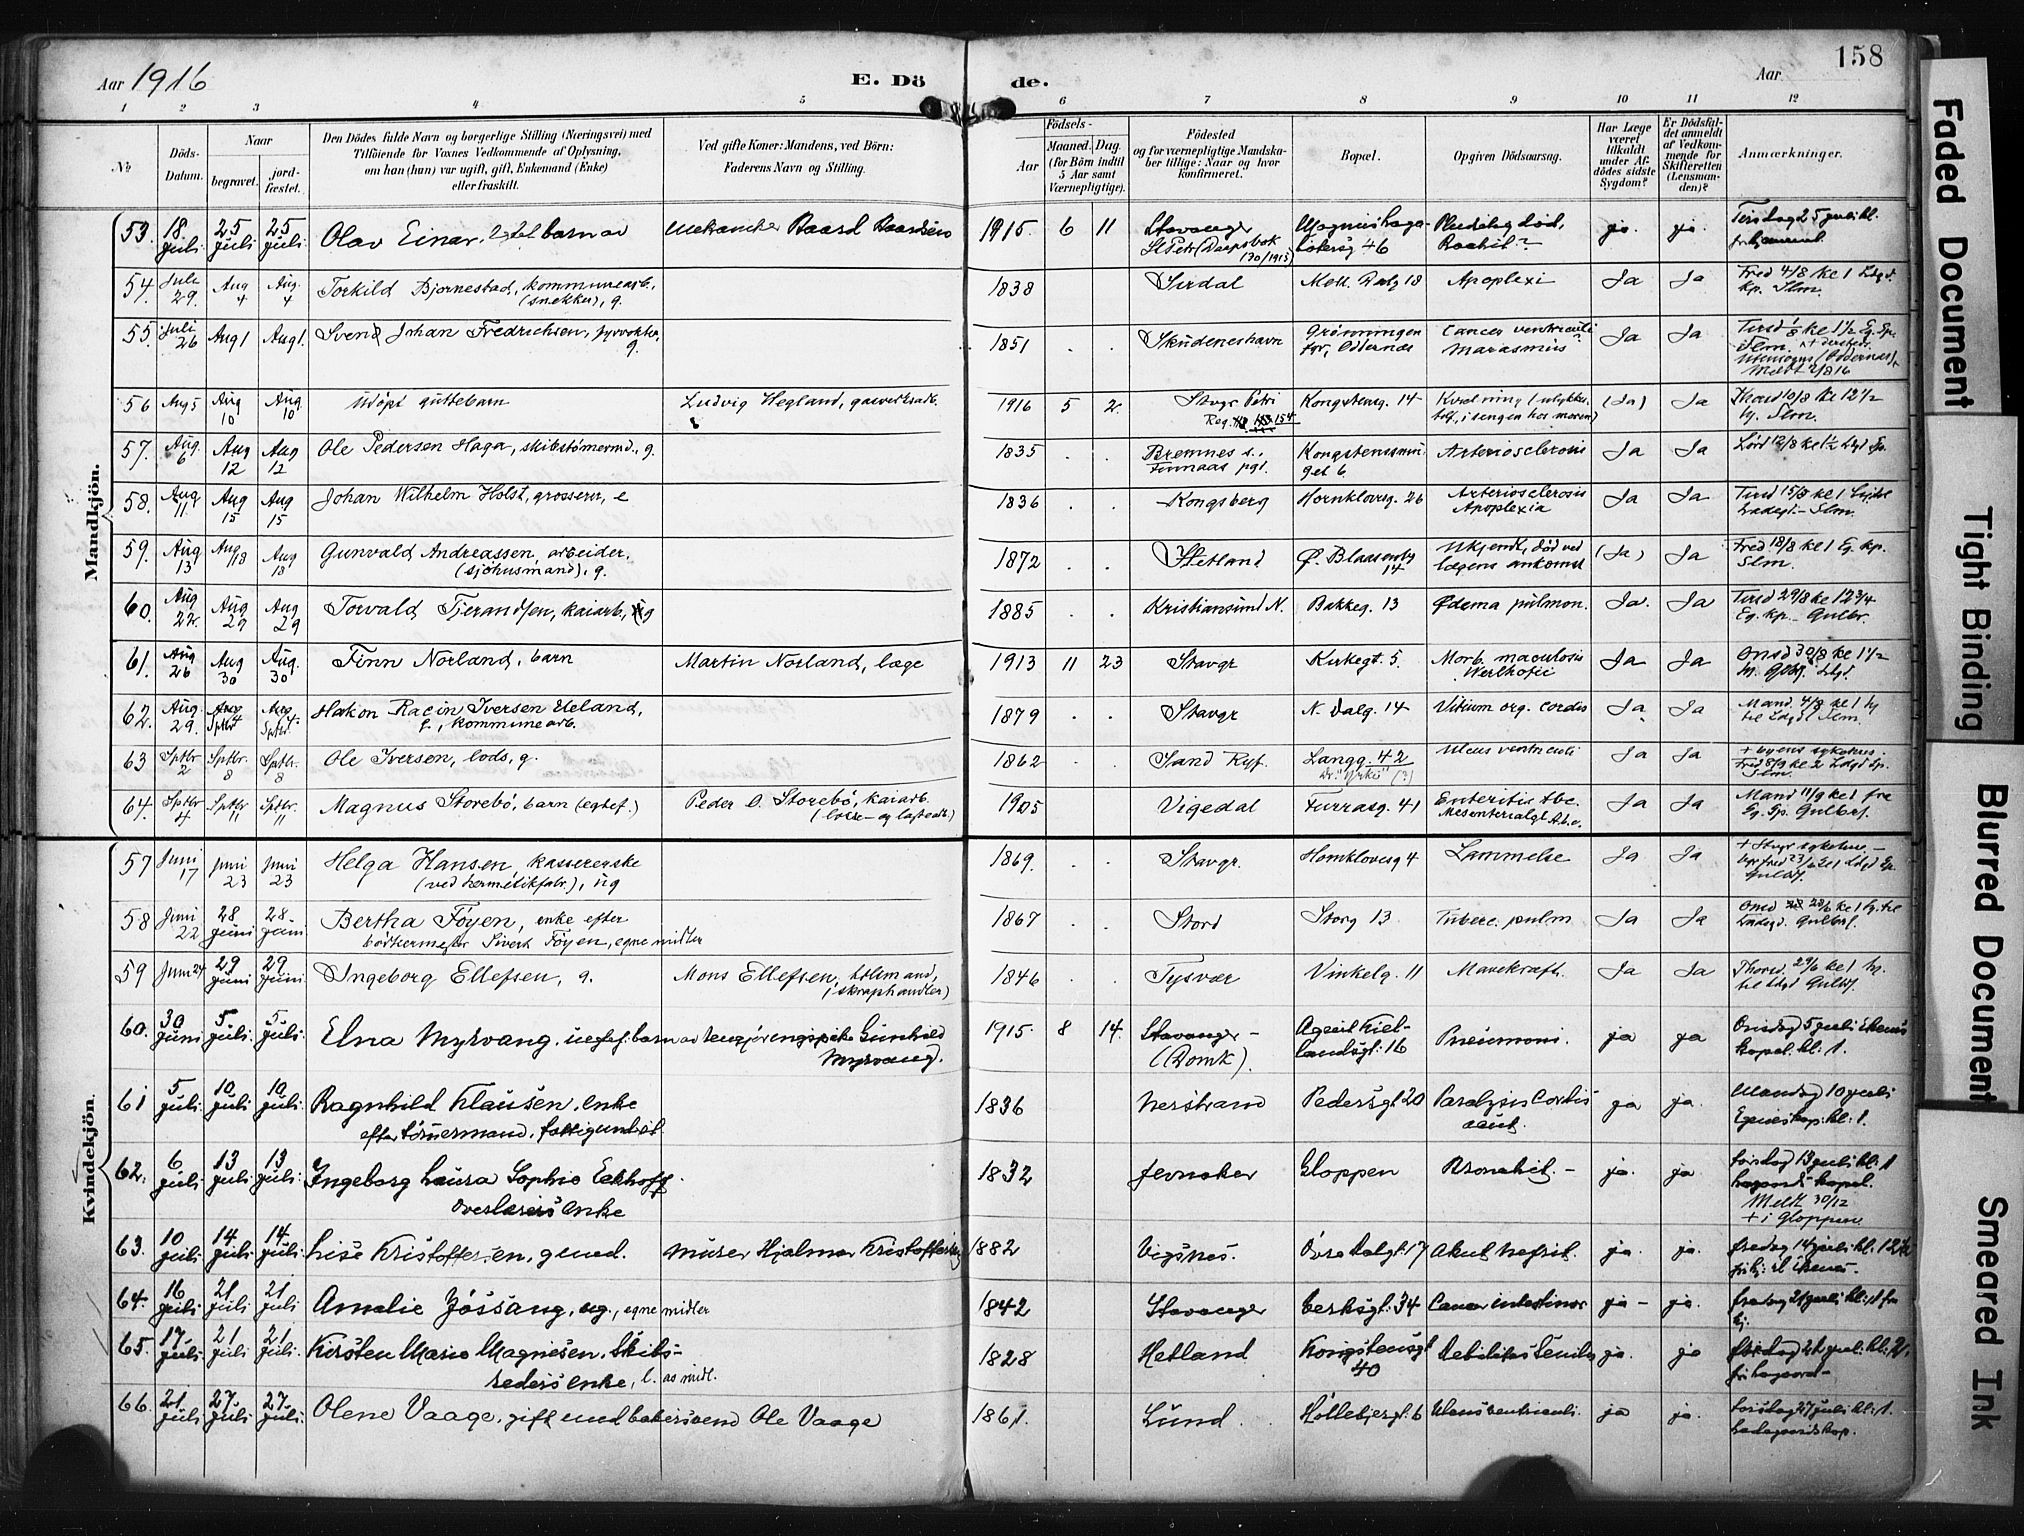 158
Aar 1916
E. Dö
de.
Aar
1 2 3 4 5 6 7 8 9 10 11 12
№
Döds-
Datum.
Naar
begravet.
jord-
fæstet.
Den Dödes fulde Navn og borgerlige Stilling (Næringsvei) med
Tilföiende for Voxnes Vedkommende af Oplysning,
om han (hun) var ugift, gift, Enkemand (Enke)
eller fraskilt.
Ved gifte Koner: Mandens, ved Börn:
Faderens Navn og Stilling.
Födsels-
Aar
Maaned. Dag.
(for Börn indtil
5 Aar samt
Værnepligtige).
Födested
og for værnepligtige Mandska-
ber tillige: Naar og hvor
konfirmeret.
Bopæl.
Opgiven Dödsaarsag.
Har Læge
været
tilkaldt
under Af-
dödes sidste
Sygdom?
Er Dödsfal-
det anmeldt
af Vedkom-
mende for
Skifteretten
(Lensman-
den)?
Anmærkninger.
Mandkjön.
53. 18 juli 25 juli 25 juli Olav Einar, barn av Mekaniker Baard Baardsen 1915. 6 11 Stavanger St Petri 130/1915 46 ja. ja. Tirsdag 25 juli kl.
54. Juli 29. Aug 4 Aug. 4 Torkild Bjørnestad, kommunearb. (snekker), g. 1838 Sirdal 18 Apoplexi Ja Ja Fred 4/8 kl 1 Ldgd. kp. Slm.
55. Juli 26 Aug 1 Aug 1. Svend Johan Fredrichsen, fyrvokter, g. 1851 . . Skudeneshavn Grønningen fyr, Oddernæs Cancer ventriculi Marasmus Ja Ja Tirsd 1/8 kl 1 1/2 Eg. Gp. Slm.
56 Aug 5 Aug 10 Aug. 10 Udøpt guttebarn Ludvig Hegland, gasverksarb. 1916 5 2. Stavgr Petri Reg. 154 Kongstensg. 14 Kvælning (ulykkestilf., i sengen hos moren) (Ja) Ja Thorsd 10/8 kl 12 1/2 hj. Slm.
57. Aug. 6 Aug 12 Aug 12 Ole Pedersen Haga, skibstømmermd., g. 1835 . . Bremnes s., Finnaas pgd. Kongstenssmuget 6 Arteriosclerosis Ja Ja Lørd 12/8 kl 1 1/2 Ldgd Gp.
58. Aug 11 Aug 15 Aug 15 Johan Wilhelm Holst, grosserer, e 1836 . . Kongsberg Hornklovesg. 26 Arteriosclerosis Apoplexia Ja Ja Tirsd 15/8 kl 1 Ladegd. Slm.
59. Aug 13 Aug 18 Aug 18 Gunvald Andreassen, arbeider, (sjøhusmand), g. 1872 . . Hetland Ø. Blaasenbg 14 Ukjendt, død ved lægens ankomst (Ja) Ja Fred 18/8 kl 1 Eg. kp. Slm.
60. Aug 22. Aug 29 Aug 29 Torvald Tjerandsen, kaiarb., g 1885 . . Kristiansund N. Bakkeg. 13 Ødema pulmon. Ja. Ja Tirsd 29/8 kl 12 3/4 Eg. kp. Gulbr.
61. Aug 26 Aug 30 Aug. 30 Finn Norland, barn Martin Norland, læge 1913 11 23 Stavgr Kirkegt. 5. Morb. maculosus Werlhofii Ja Ja Onsd 30/8 kl 1 1/2
62. Aug. 29. Sptbr 4 Sptbr. 4 Hakon Racin Iversen Ueland, kommunearb. 1879 . . Stavgr N. Dalg. 14 Vitium org. cordis Ja Ja Mand. 4/9 kl 1 hj til Ldgd Slm.
63 Sptbr. 2 Sptbr 8 Sptbr. 8 Ole Iversen, lods, g. 1862 . . Sand Ryf. Langg. 42 Ulcus ventriculi Ja Ja + byens sykehus. Fred 8/9 kl 2 Ldgd Gp. Slm.
64. Sptbr 4 Sptbr. 11 Sptbr. 11 Magnus Storebø, barn (egtef.) Peder O. Storebø, kaiarb. (losse- og lastearb.) 1905 Vigedal Furrasg. 41 Enteritis tbc. Mesenterialgl. tbc. Ja Ja Mand 11/9 kl 1 fra Eg. Gp. Gulbr.
Kvindekjön.
57 Juni 17 Juni 23 Juni 23 Helga Hansen, kassererske (ved hermetikfabr.), ug 1869. . . Stavgr. Hornklovesg 4 Lammelse Ja Ja + Stvgr sykehus
58 Juni 22 28 juni 28 juni Bertha Føyen, enke efter bødkermester Sivert Føyen, egne midler 1867 . . Stord Storg 13 Tuberc. pulm Ja Ja Onsd 28/6 kl 1 hj. til Ladegd. Gulbr.
59 Juni 24 29 juni 29 juni Ingeborg Ellefsen, g. Mons Ellefsen, (skraphandler) 1846 . . Tysvær Vinkelg. 11 Mavekræft. Ja Ja Thorsd 29/6 kl 1 hj. til Ldgd Gulbr.
60. 30 juni 5 juli. 5 juli. Elna Myrvang, uegtef. barn av rengjøringspike Gunhild Myrvang. 1915. 8 14. Stavanger (Domk). Agent Kiellandsgt. 16 Pneumoni. ja ja Onsdag 5 juli Ekenæs kapel. kl. 1.
61 5 juli. 10 juli 10 juli. Ragnhild Klausen, enke efter tømmermand, fattigunderst. 1836 Nerstrand Pedersgt 20 Paralysis Cordis acut. ja ja. Mandag 10 juli Egenes kap. kl. 1.
62. 6 juli 13 juli 13 juli. Ingeborg Laura Sophie Eckhoff. overlærers enke 1832 Jevnaker Gloppen Bronchit. - ja. ja Torsdag 13 juli kl. 1 Lagaards kapel. Meldt 30/12 + i Gloppen
63. 10 juli 14 juli 14 juli. Lise Kristoffersen, g. med. murer Hjalmar Kristoffersen 1882 Vigsnes. Øvre Dalgt. 17 Akut Nefrit. ja. ja. fredag 14 juli kl. 12 1/2
64. 16 juli 21 juli 21 juli Amalie Jøssang, ug., egne midler 1842 Stavanger Verksgt. 34 Cancer intestinor ja - ja. fredag 21 juli kl. 1 fra hj.
65. 17 juli 21 juli 21 juli. Kirsten Marie Magnesen, Skibsreders enke, l. as midl. 1828 Hetland Kongstensgt 40 Debilitas Senilis ja. ja
66. 21 juli 27 juli 27 juli. Olene Vaage, gift med bakersvend Ole Vaage 1861. Lund. Hollebjergt. 6 Ulcus ventriculi. ja ja. Torsdag 27 juli kl. 1. Ladegaards kap.
Faded Document
Tight Binding
Blurred Document
Smeared Ink